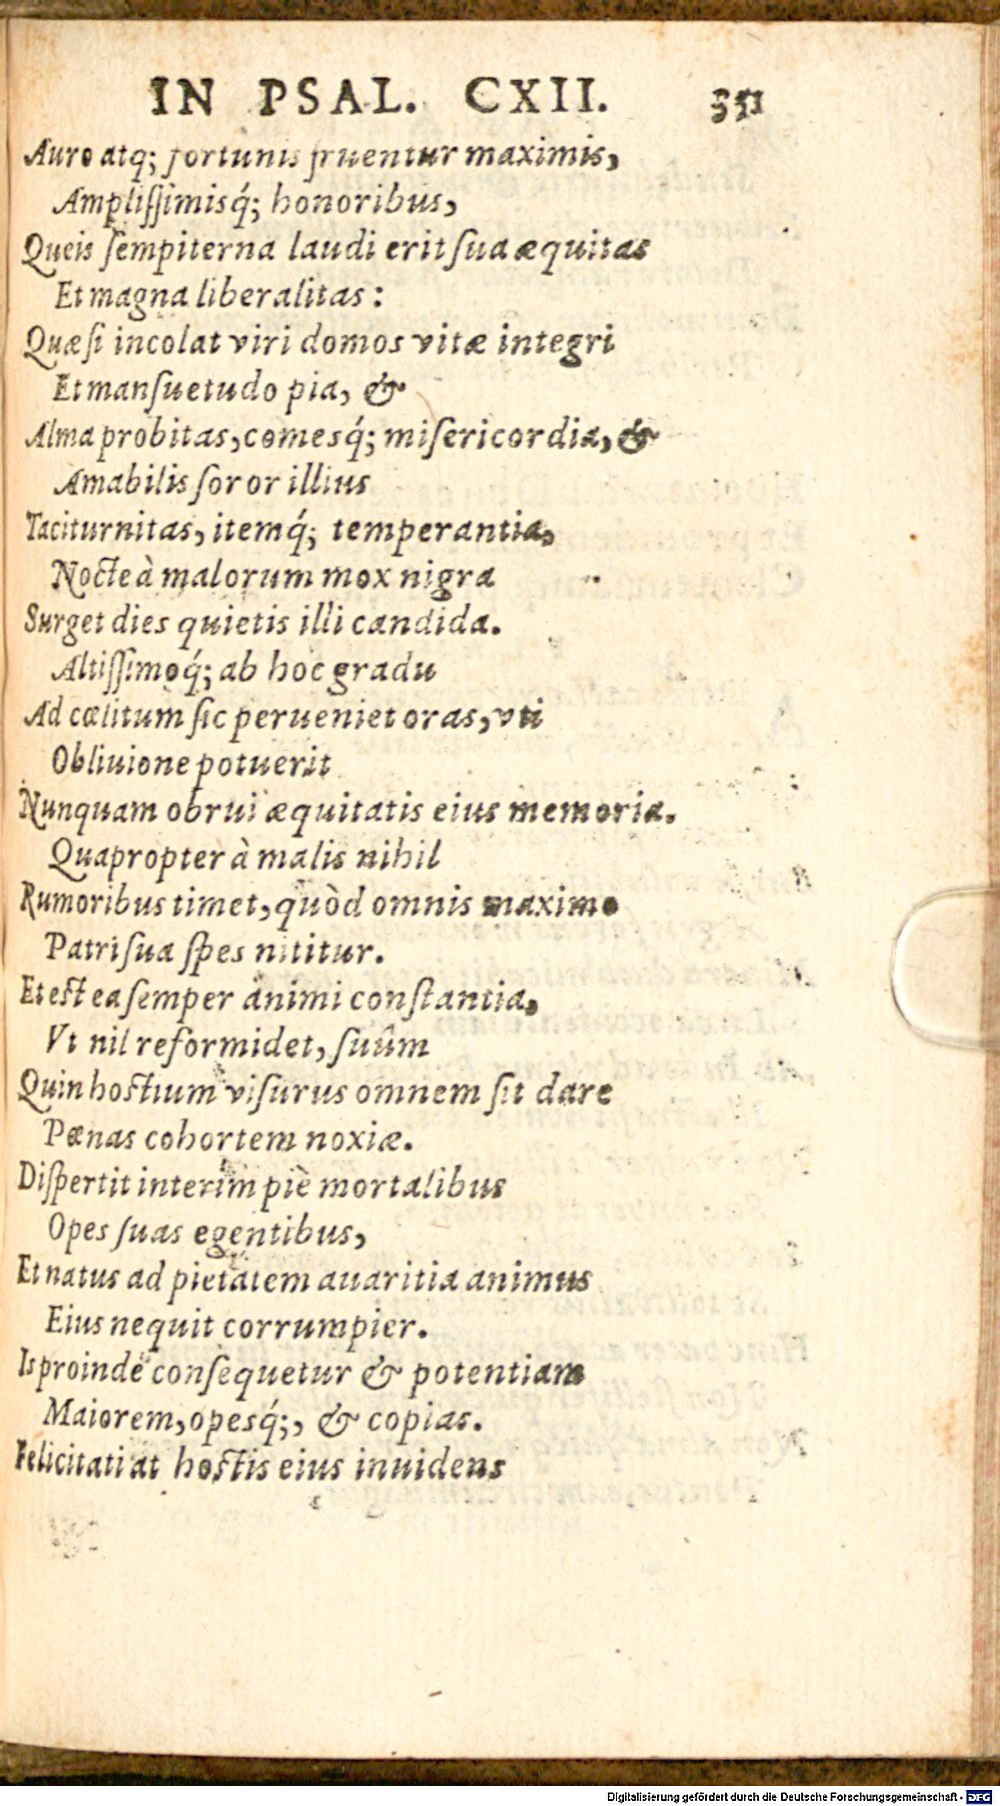 IN PSAL. CXII. 351
Auro atq; fortunis fruentur maximis,
Ampliſſimisq́; honoribus,
Queis ſempiterna laudi erit ſua æquitas
Et magna liberalitas:
Quæ ſi incolat viri domos vitæ integri
Et manſuetudo pia, &
Alma probitas, comesq́; miſericordia, &
Amabilis ſoror illius
Taciturnitas, itemq́; temperantia,
Nocte à malorum mox nigra
Surget dies quietis illi candida.
Altiſſimoq́; ab hoc gradu
Ad cœlitum ſic perueniet oras, vti
Obliuione potuerit
Nunquam obrui æquitatis eius memoria.
Quapropter à malis nihil
Rumoribus timet, quòd omnis maximo
Patri ſua ſpes nititur.
Et eſt ea ſemper animi conſtantia,
Vt nil reformidet, ſuûm
Quin hoſtium viſurus omnem ſit dare
Pœnas cohortem noxiæ.
Diſpertit interim piè mortalibus
Opes ſuas egentibus,
Et natus ad pietatem auaritia animus
Eius nequit corrumpier.
Is proinde conſequetur & potentiam
Maiorem, opesq́;, & copias.
Felicitati at hoſtis eius inuidens
Digitalisierung gefördert durch die Deutsche Forschungsgemeinschaft - DFG